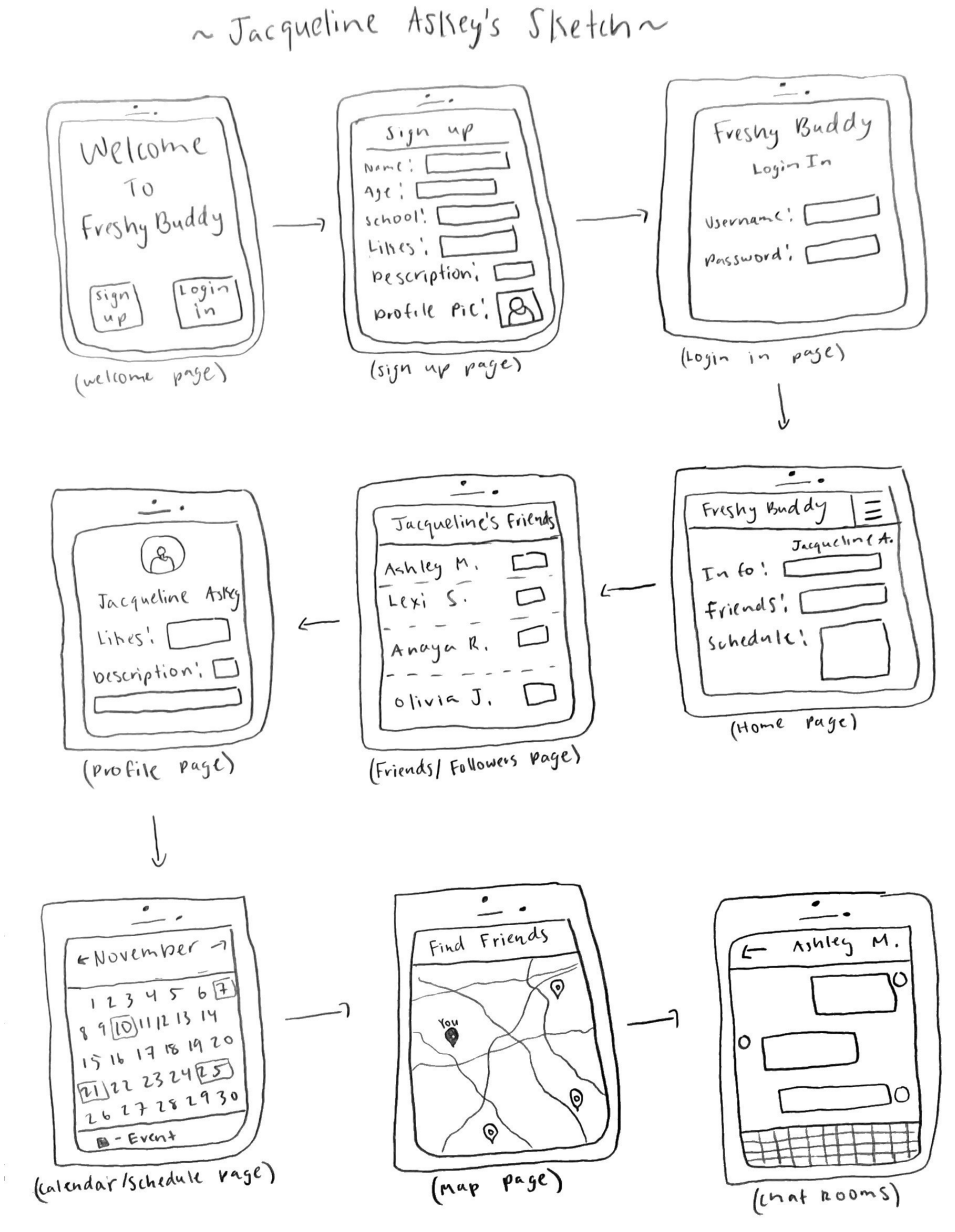 ~ Jacqueline Askey's Sketch ~
Welcome
To
Freshy Buddy
Sign up
Login in
(Welcome page)
Sign up
Name:
Age:
School:
Likes:
Description:
Profile Pic:
(Sign up page)
Freshy Buddy
Login In
Username:
Password:
(Login in page)
Freshy Buddy
Jacqueline A.
Info:
Friends:
Schedule:
(Home Page)
Jacqueline's Friends
Ashley M.
Lexi S.
Anaya R.
Olivia J.
(Friends/Followers page)
Jacqueline Askey
Likes:
Description:
(Profile page)
← November →
1 2 3 4 5 6 7
8 9 10 11 12 13 14
15 16 17 18 19 20
21 22 23 24 25
26 27 28 29 30
- Event
(Calendar/Schedule page)
Find Friends
You
(Map page)
← Ashley M.
(Chat Rooms)